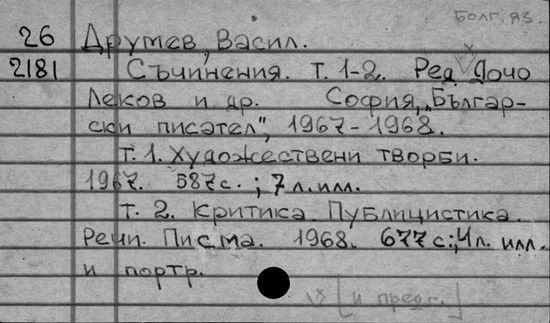 Болг. яз.
26 Друмев, Васил.
2181 Съчинения. Т. 1-2. Ред. Дочо
Леков и др. София, „Българ-
ски писател", 1967-1968.
Т. 1. Художествени творби.
1967. 587 с.; 7 л. илл.
Т. 2. Критика. Публицистика.
Речи. Писма. 1968. 677 с.; 4 л. илл.
и портр.
[и предг.]